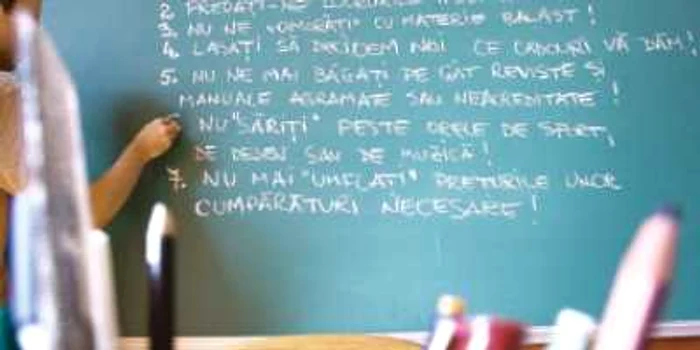 2. PREDAȚI-NE
3. NU NE "OMORÂȚI" CU MATERIE BALAST!
4. LĂSAȚI SĂ DECIDEM NOI CE CADOURI VĂ DĂM!
5. NU NE MAI BĂGAȚI PE GÂT REVISTE ȘI
MANUALE AGRAMATE SAU NEACREDITATE!
NU "SĂRIȚI" PESTE ORELE DE SPORT,
DE DESEN SAU DE MUZICĂ!
7. NU MAI "UMFLAȚI" PREȚURILE UNOR
CUMPĂRĂTURI NECESARE!